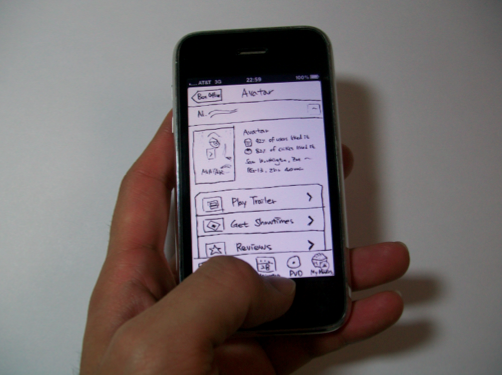 AT&T 3G 22:59 100%
Box Office Avatar
Avatar
92% of users liked it
82% of critics liked it
Sam Worthington, Zoe
Play Trailer
Get Showtimes
Reviews
DVD My Movies